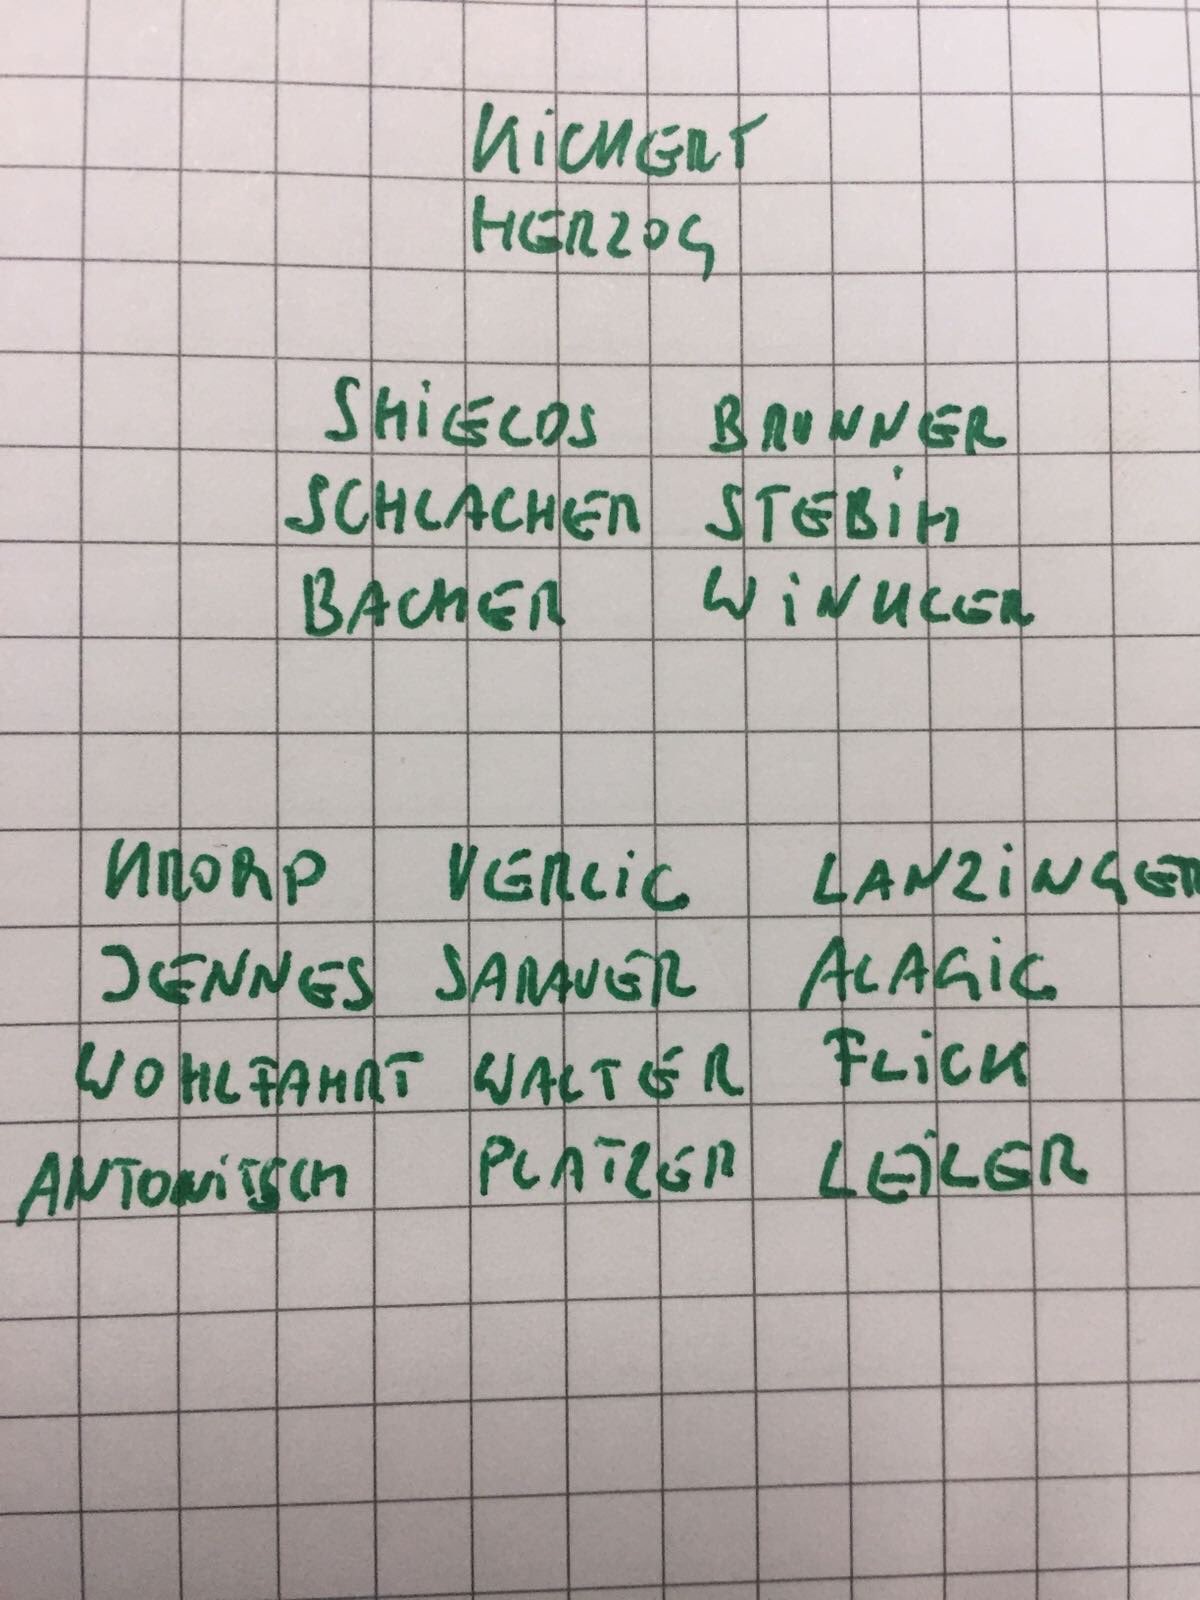 KICKERT
HERZOG
SHIELDS BRUNNER
SCHLACHER STEBIH
BACHER WINKLER
KROMP VERLIC LANZINGER
JENNES SARAUER ALAGIC
WOHLFAHRT WALTER FLICK
ANTONITSCH PLATZER LEILER